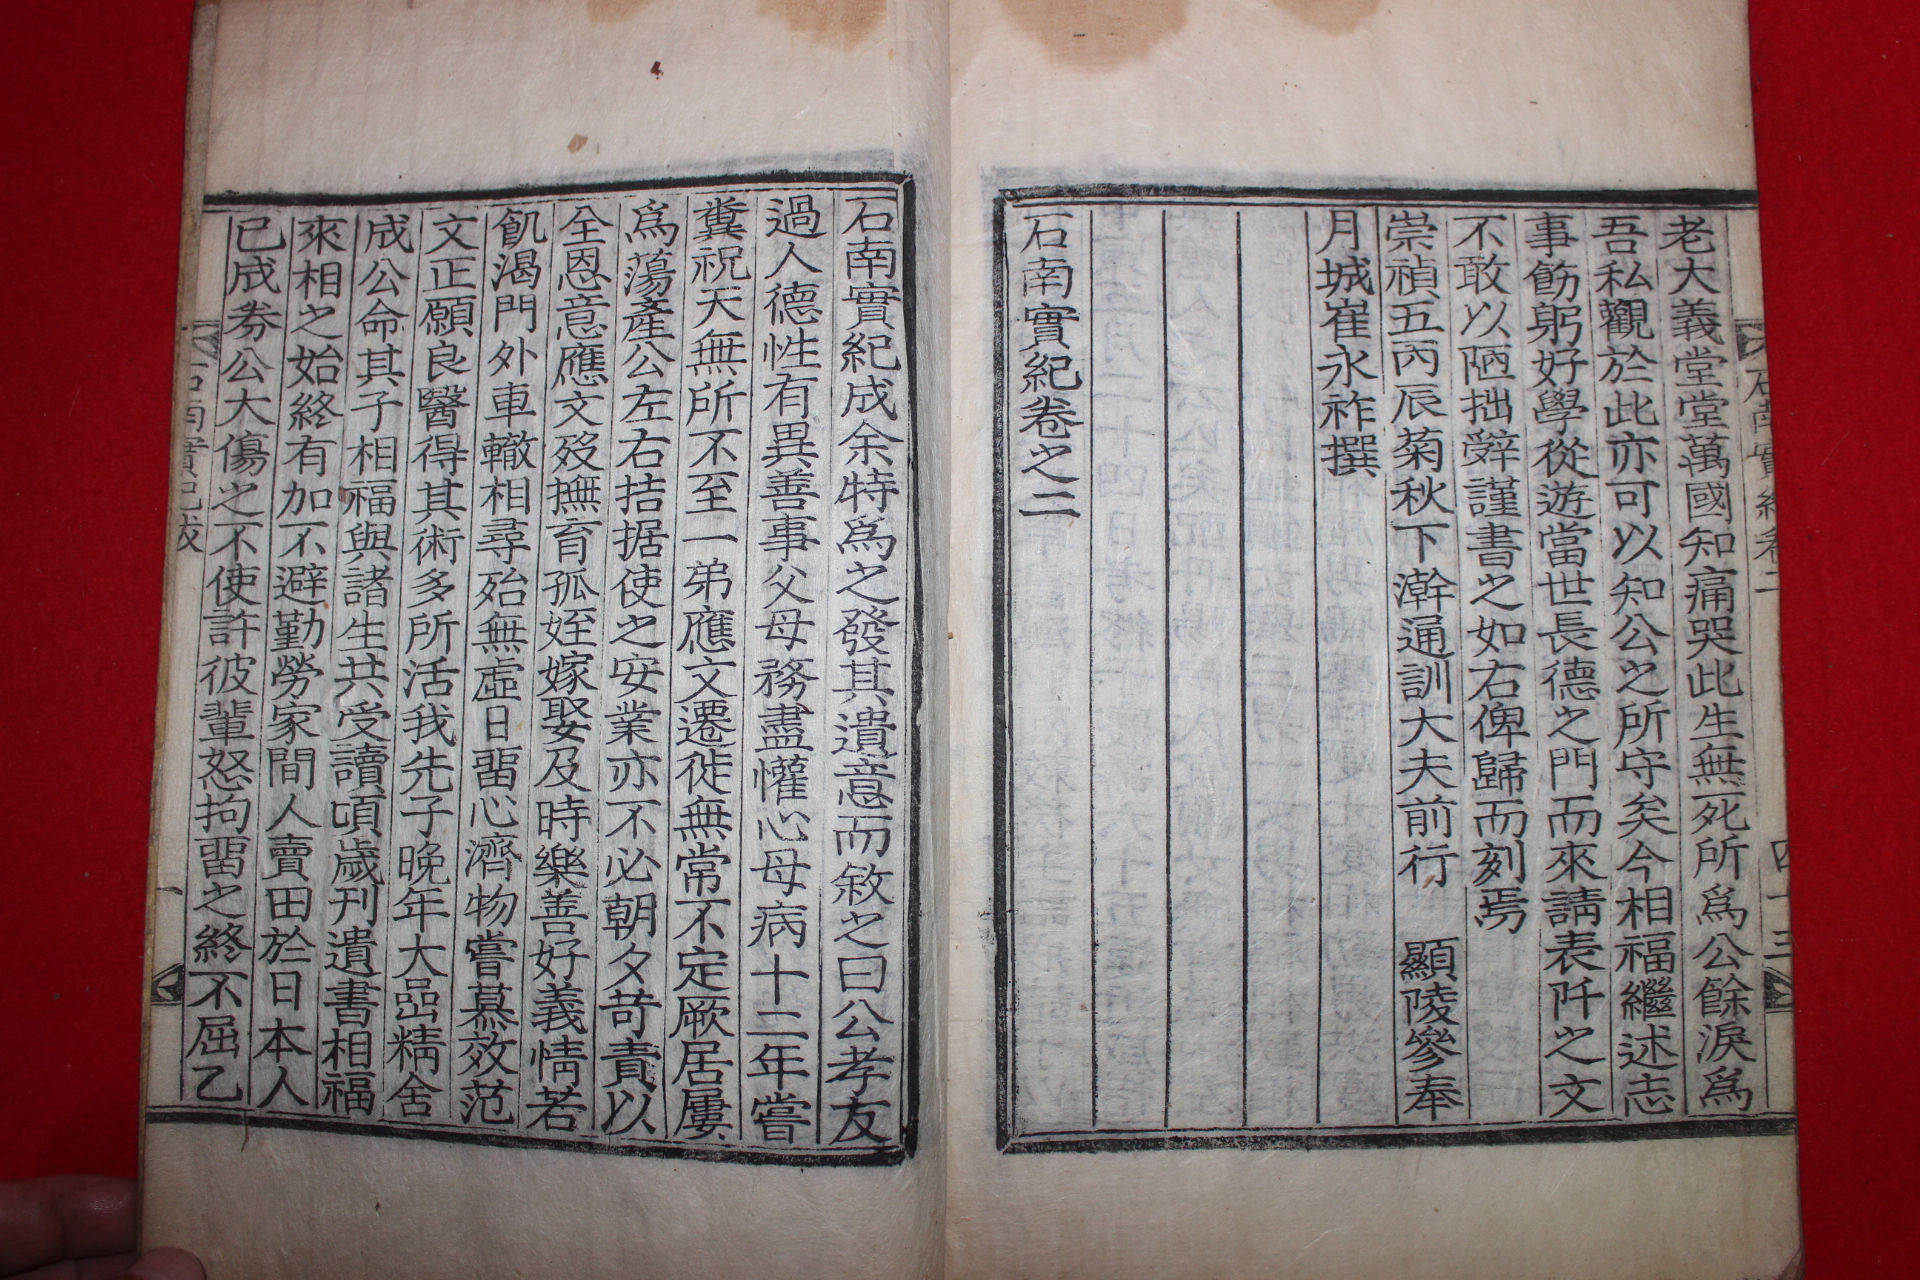 老大義堂堂萬國知痛哭此生無死所爲公餘淚爲
吾私觀於此亦可以知公之所守矣今相福繼述志
事飭躬好學從遊當世長德之門而來請表阡之文
不敢以陋拙辭謹書之如右俾歸而刻焉
崇禎五丙辰菊秋下澣通訓大夫前行 顯陵參奉
月城崔永祚撰
石南實紀卷之二
石南實紀成余特爲之發其遺意而敘之曰公孝友
過人德性有異善事父母務盡懽心母病十二年嘗
糞祝天無所不至一弟應文遷徙無常不定厥居屢
爲蕩產公左右拮据使之安業亦不必朝夕苛責以
全恩意應文歿撫育孤姪嫁娶及時樂善好義情若
飢渴門外車轍相尋殆無虛日留心濟物嘗慕效范
文正願良醫得其術多所活我先子晚年大嵒精舍
成公命其子相福與諸生共受讀頃歲刊遺書相福
來相之始終有加不避勤勞家間人賣田於日本人
已成券公大傷之不使許彼輩怒拘留之終不屈乙
石南實紀卷二
四十三
石南實紀跋
一